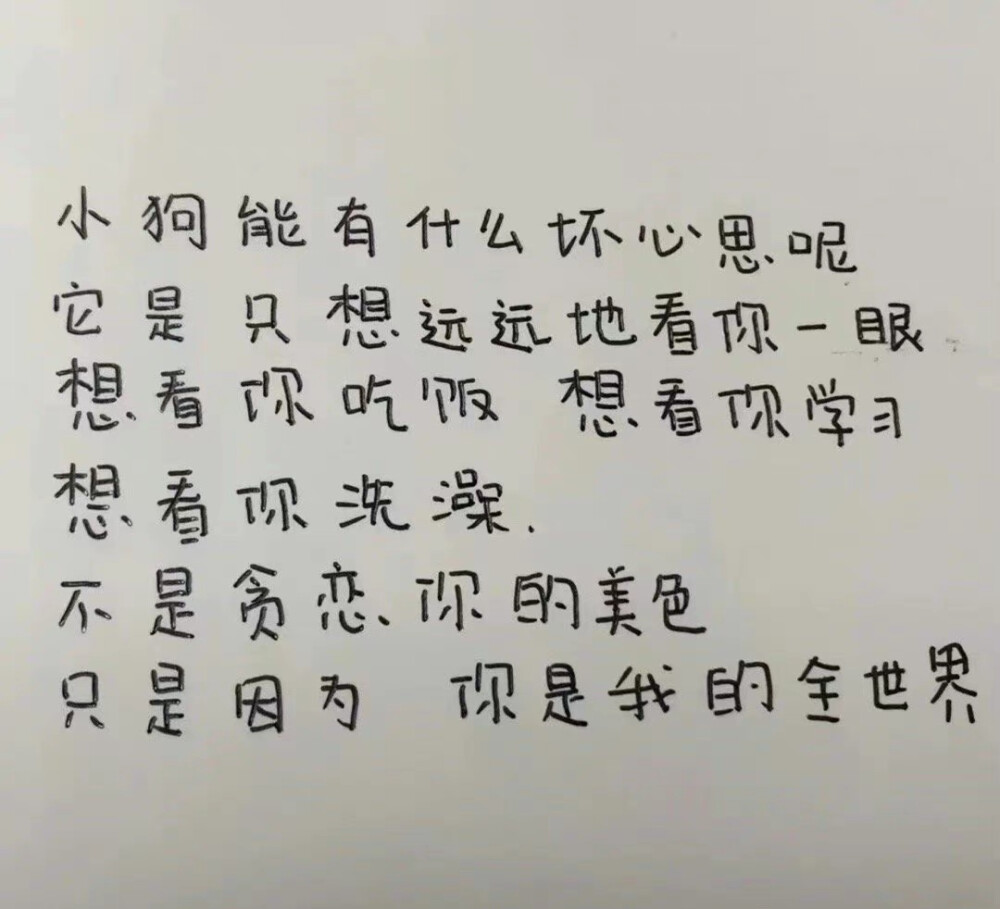 小狗能有什么坏心思呢
它是只想远远地看你一眼
想看你吃饭 想看你学习
想看你洗澡.
不是贪恋你的美色
只是因为 你是我的全世界